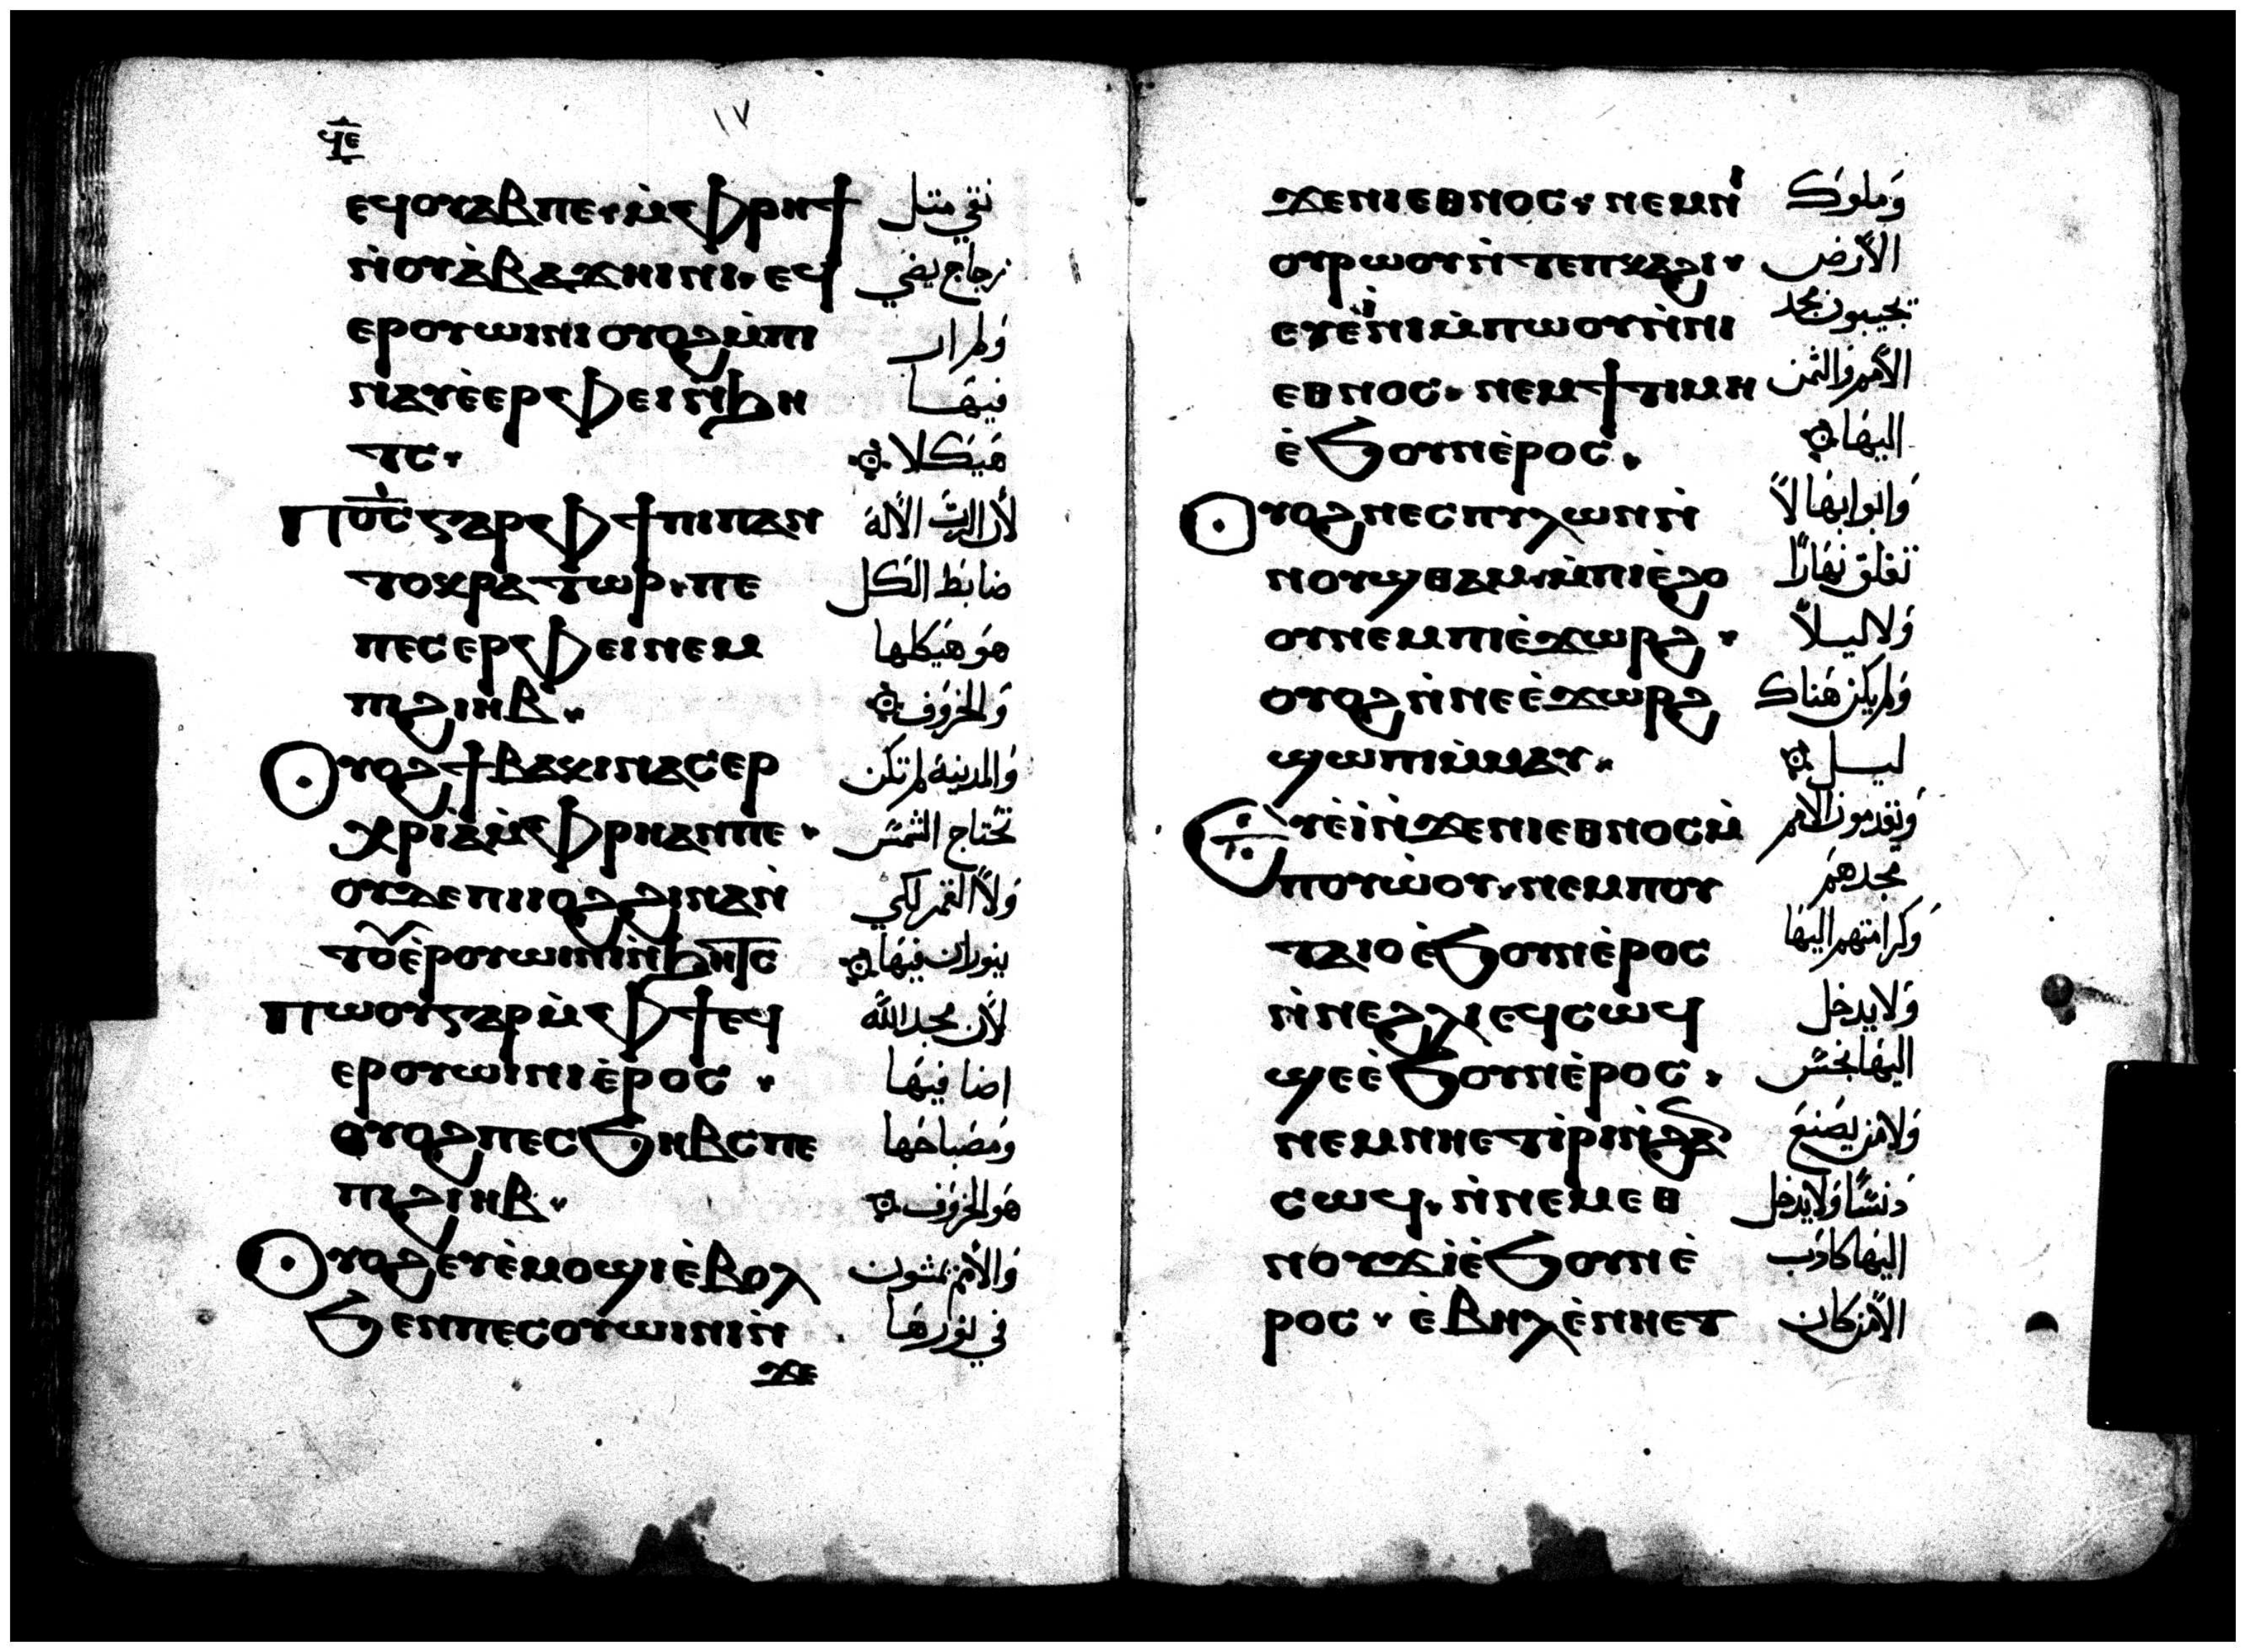 ١٧
ϥⲉ
ⲉϥⲟⲩⲁⲃⲡⲉ ⲙ̀ⲫⲣⲏϯ نقي مثل
ⲛ̀ⲟⲩⲁ̀ⲃⲁϫⲏⲓⲛⲓ ⲉϥ زجاج يضي
ⲉⲣⲟⲩⲱⲓⲛⲓ ⲟⲩⲟϩⲙ̀ⲡⲓ ولم ار
ⲛⲁⲩⲉ̀ⲉⲣⲫⲉⲓⲛ̀ϧⲏ فيها
ⲧⲥ هَيكلا
Ⲡⲟ̅ⲥ̅ⲅⲁⲣⲫϯⲡⲓⲡⲁⲛ لأن الرب الأله
ⲧⲟⲕⲣⲁⲧⲱⲣ ⲡⲉ ضابط الكل
ⲡⲉⲥⲉⲣⲫⲉⲓⲛⲉⲙ هو هَيكلها
ⲡⲓϩⲓⲏⲃ وَالخروف
Ⲟⲩⲟϩϯⲃⲁⲕⲓⲛⲁⲥⲉⲣ وَالمدينة لم تكن
ⲭⲣⲓⲁⲙ̀ⲫⲣⲏⲁⲛⲡⲉ تحتاج الشمس
ⲟⲩⲇⲉⲡⲓⲓⲟϩϩⲓⲛⲁⲛ̀ وَلا القمر لكي
ⲧⲟⲩⲉ̀ⲣⲟⲩⲱⲓⲛⲓⲛ̀ϧⲏⲧⲥ ينوران فيها
Ⲡⲱⲟⲩⲅⲁⲣⲙ̀ⲫϯⲉϥ لأن مجد الله
ⲉⲣⲟⲩⲱⲓⲛⲓⲉ̀ⲣⲟⲥ اضا فيها
ⲟⲩⲟϩⲡⲉⲥϧⲏⲃⲥⲡⲉ ومصباحها
ⲡⲓϩⲓⲏⲃ هَو الخروف
Ⲟⲩⲟϩⲉⲩⲉ̀ⲙⲟϣⲓⲉ̀ⲃⲟⲗ وَالأمم يمشون
ϧⲉⲛⲡⲉⲥⲟⲩⲱⲓⲛⲓⲛ̀ في نورها
ϫⲉ
ϫⲉⲛⲓⲉⲑⲛⲟⲥ ⲛⲉⲙⲛⲓ وَملوك
ⲟⲩⲣⲱⲟⲩⲛ̀ⲧⲉⲡⲕⲁϩⲓ الأرض
ⲉⲩⲉ̀ⲓ̀ⲛⲓⲙ̀ⲡⲱⲟⲩⲛ̀ⲛⲓ يجيبون مجد
ⲉⲑⲛⲟⲥ ⲛⲉⲙϯⲧⲓⲙⲏ الأمم والثمن
ⲉ̀ϧⲟⲩⲛⲉ̀ⲣⲟⲥ اليها
Ⲟⲩⲟϩⲛⲉⲥⲡⲩⲗⲱⲛⲛ̀ وَابوابها لا
ⲛⲟⲩϣⲑⲁⲙ ⲙ̀ⲡⲓⲉ̀ϩⲟ تغلق نهارًا
ⲟⲩⲛⲉⲙⲡⲓⲉ̀ϫⲱⲣϩ وَلا ليلاً
ⲟⲩⲟϩⲛ̀ⲛⲉⲉ̀ϫⲱⲣϩ وَلم يكن هناك
ϣⲱⲡⲓⲙ̀ⲙⲁⲩ ليل
Ⲉⲩⲉ̀ⲓ̀ⲛ̀ϫⲉⲛⲓⲉⲑⲛⲟⲥⲙ̀ وَيقدمون الأمم
ⲡⲟⲩⲱ̀ⲟⲩ ⲛⲉⲙⲡⲟⲩ مجدهم
ⲧⲁⲓⲟⲉ̀ϧⲟⲩⲛⲉ̀ⲣⲟⲥ وَكرامتهم اليها
ⲛ̀ⲛⲉϩⲗⲓⲉϥⲥⲱϥ وَلا يدخل
ϣⲉⲉ̀ϧⲟⲩⲛⲉ̀ⲣⲟⲥ اليها نجس
ⲛⲉⲙⲛⲏⲉⲧⲓ̀ⲣⲓⲛ̀ϩⲁ وَلا من يَصنع
ⲥⲱϥ ⲛ̀ⲛⲉⲙⲉⲑ دنسًا وَلا يدخل
ⲛⲟⲩϫⲓ̀ⲉ̀ϧⲟⲩⲛⲉ̀ اليها كاذب
ⲣⲟⲥ ⲉ̀ⲃⲏⲗⲉ̀ⲛⲏⲉⲧ الأمن كان